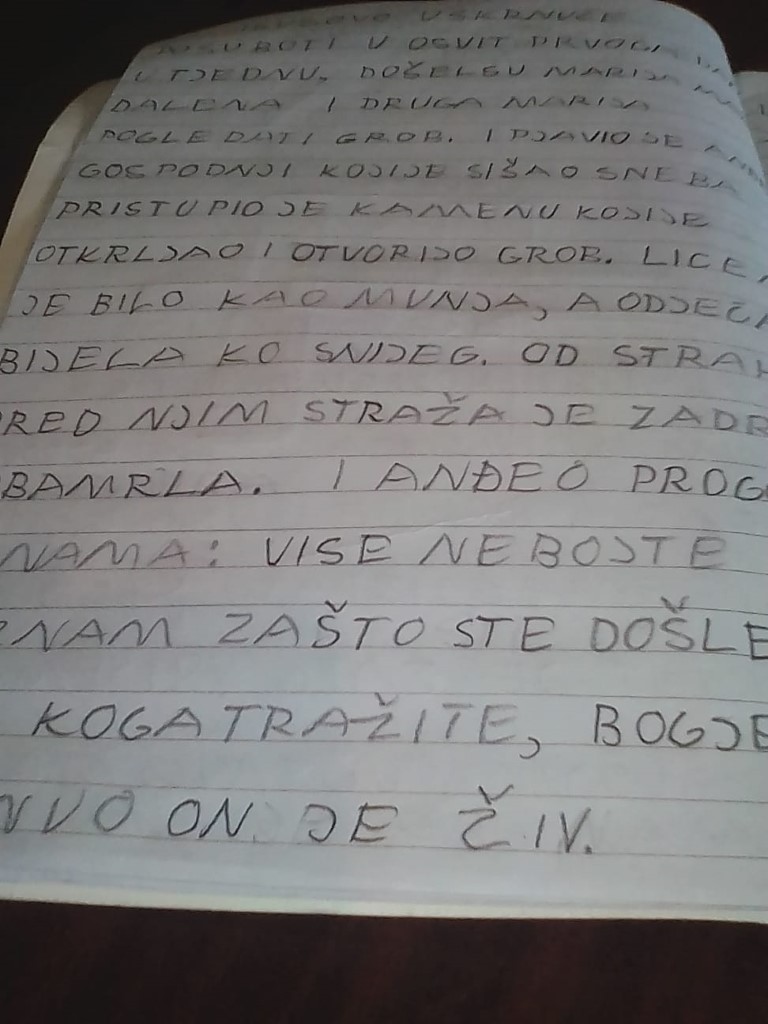 USKRNUĆE
SUBOTI U OSVIT PRVOGA
U TJEDNU, DOŠELSU MARIJA MA
DALENA I DRUGA MARIJA
POGLEDATI GROB. I PJAVIO JE AN
GOSPODNJI KOJIJE SIŠAO SNEBA
PRISTUPIO JE KAMENU KOJIJE
OTKRLJAO I OTVORIJO GROB. LICE
JE BILO KAO MUNJA, A ODJEĆA
BIJELA KO SNIJEG. OD STRAH
RED NJIM STRAŽA JE ZADR
BAMRLA. I ANĐEO PROG
NAMA: VISE NEBOJTE
ZNAM ZAŠTO STE DOŠLE
KOGATRAŽITE, BOGJE
VVO ON JE ŽIV.